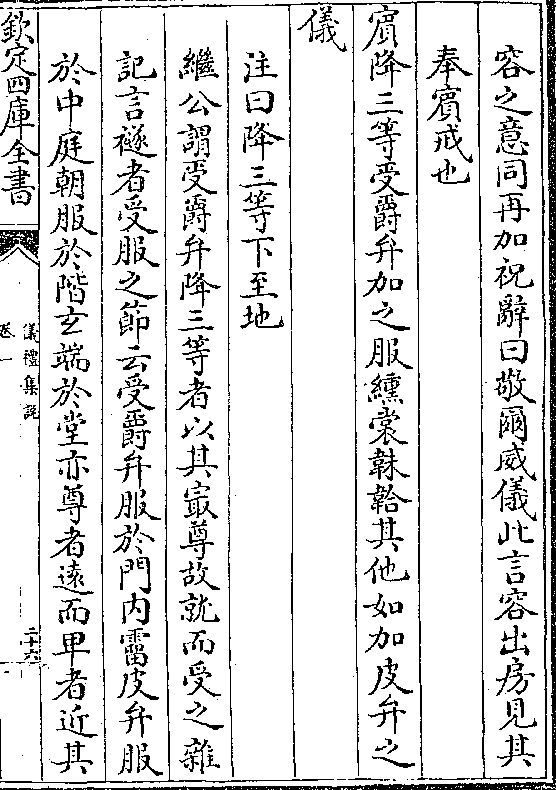 容之意同再加祝辭曰敬爾威儀此言容出房見其
奉賓戒也
賓降三等受爵弁加之服纁裳韎韐其他如加皮弁之
儀
注曰降三等下至地
繼公謂受爵弁降三等者以其㝡尊故就而受之雜
記言襚者受服之節云受爵弁服於門内霤皮弁服
於中庭朝服於階玄端於堂亦尊者遠而卑者近其
欽定四庫全書
儀禮集說
卷一
二十六